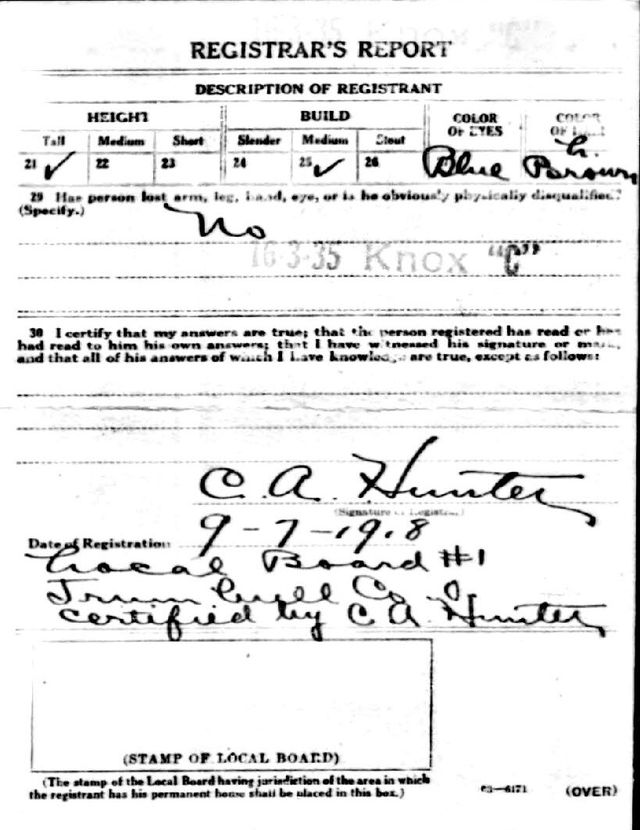 REGISTRAR'S REPORT
DESCRIPTION OF REGISTRANT
HEIGHT BUILD COLOR OF EYES COLOR OF
Tall Medium Short Slender Medium Stout
21 ✓ 22 23 24 25 ✓ 26 Blue Brown
29 Has person lost arm, leg, hand, eye, or is he obviously physically disqualified?
(Specify.)
No
16-3-35 Knox "C"
30 I certify that my answers are true; that the person registered has read or has
had read to him his own answers; that I have witnessed his signature or mark,
and that all of his answers of which I have knowledge are true, except as follows:
C. A. Hunter
(Signature of Registrar)
Date of Registration 9-7-1918
Local Board #1
Trumbull Co O.
certified by C A Hunter
(STAMP OF LOCAL BOARD)
(The stamp of the Local Board having jurisdiction of the area in which
the registrant has his permanent home shall be placed in this box.)
03—6171 (OVER)